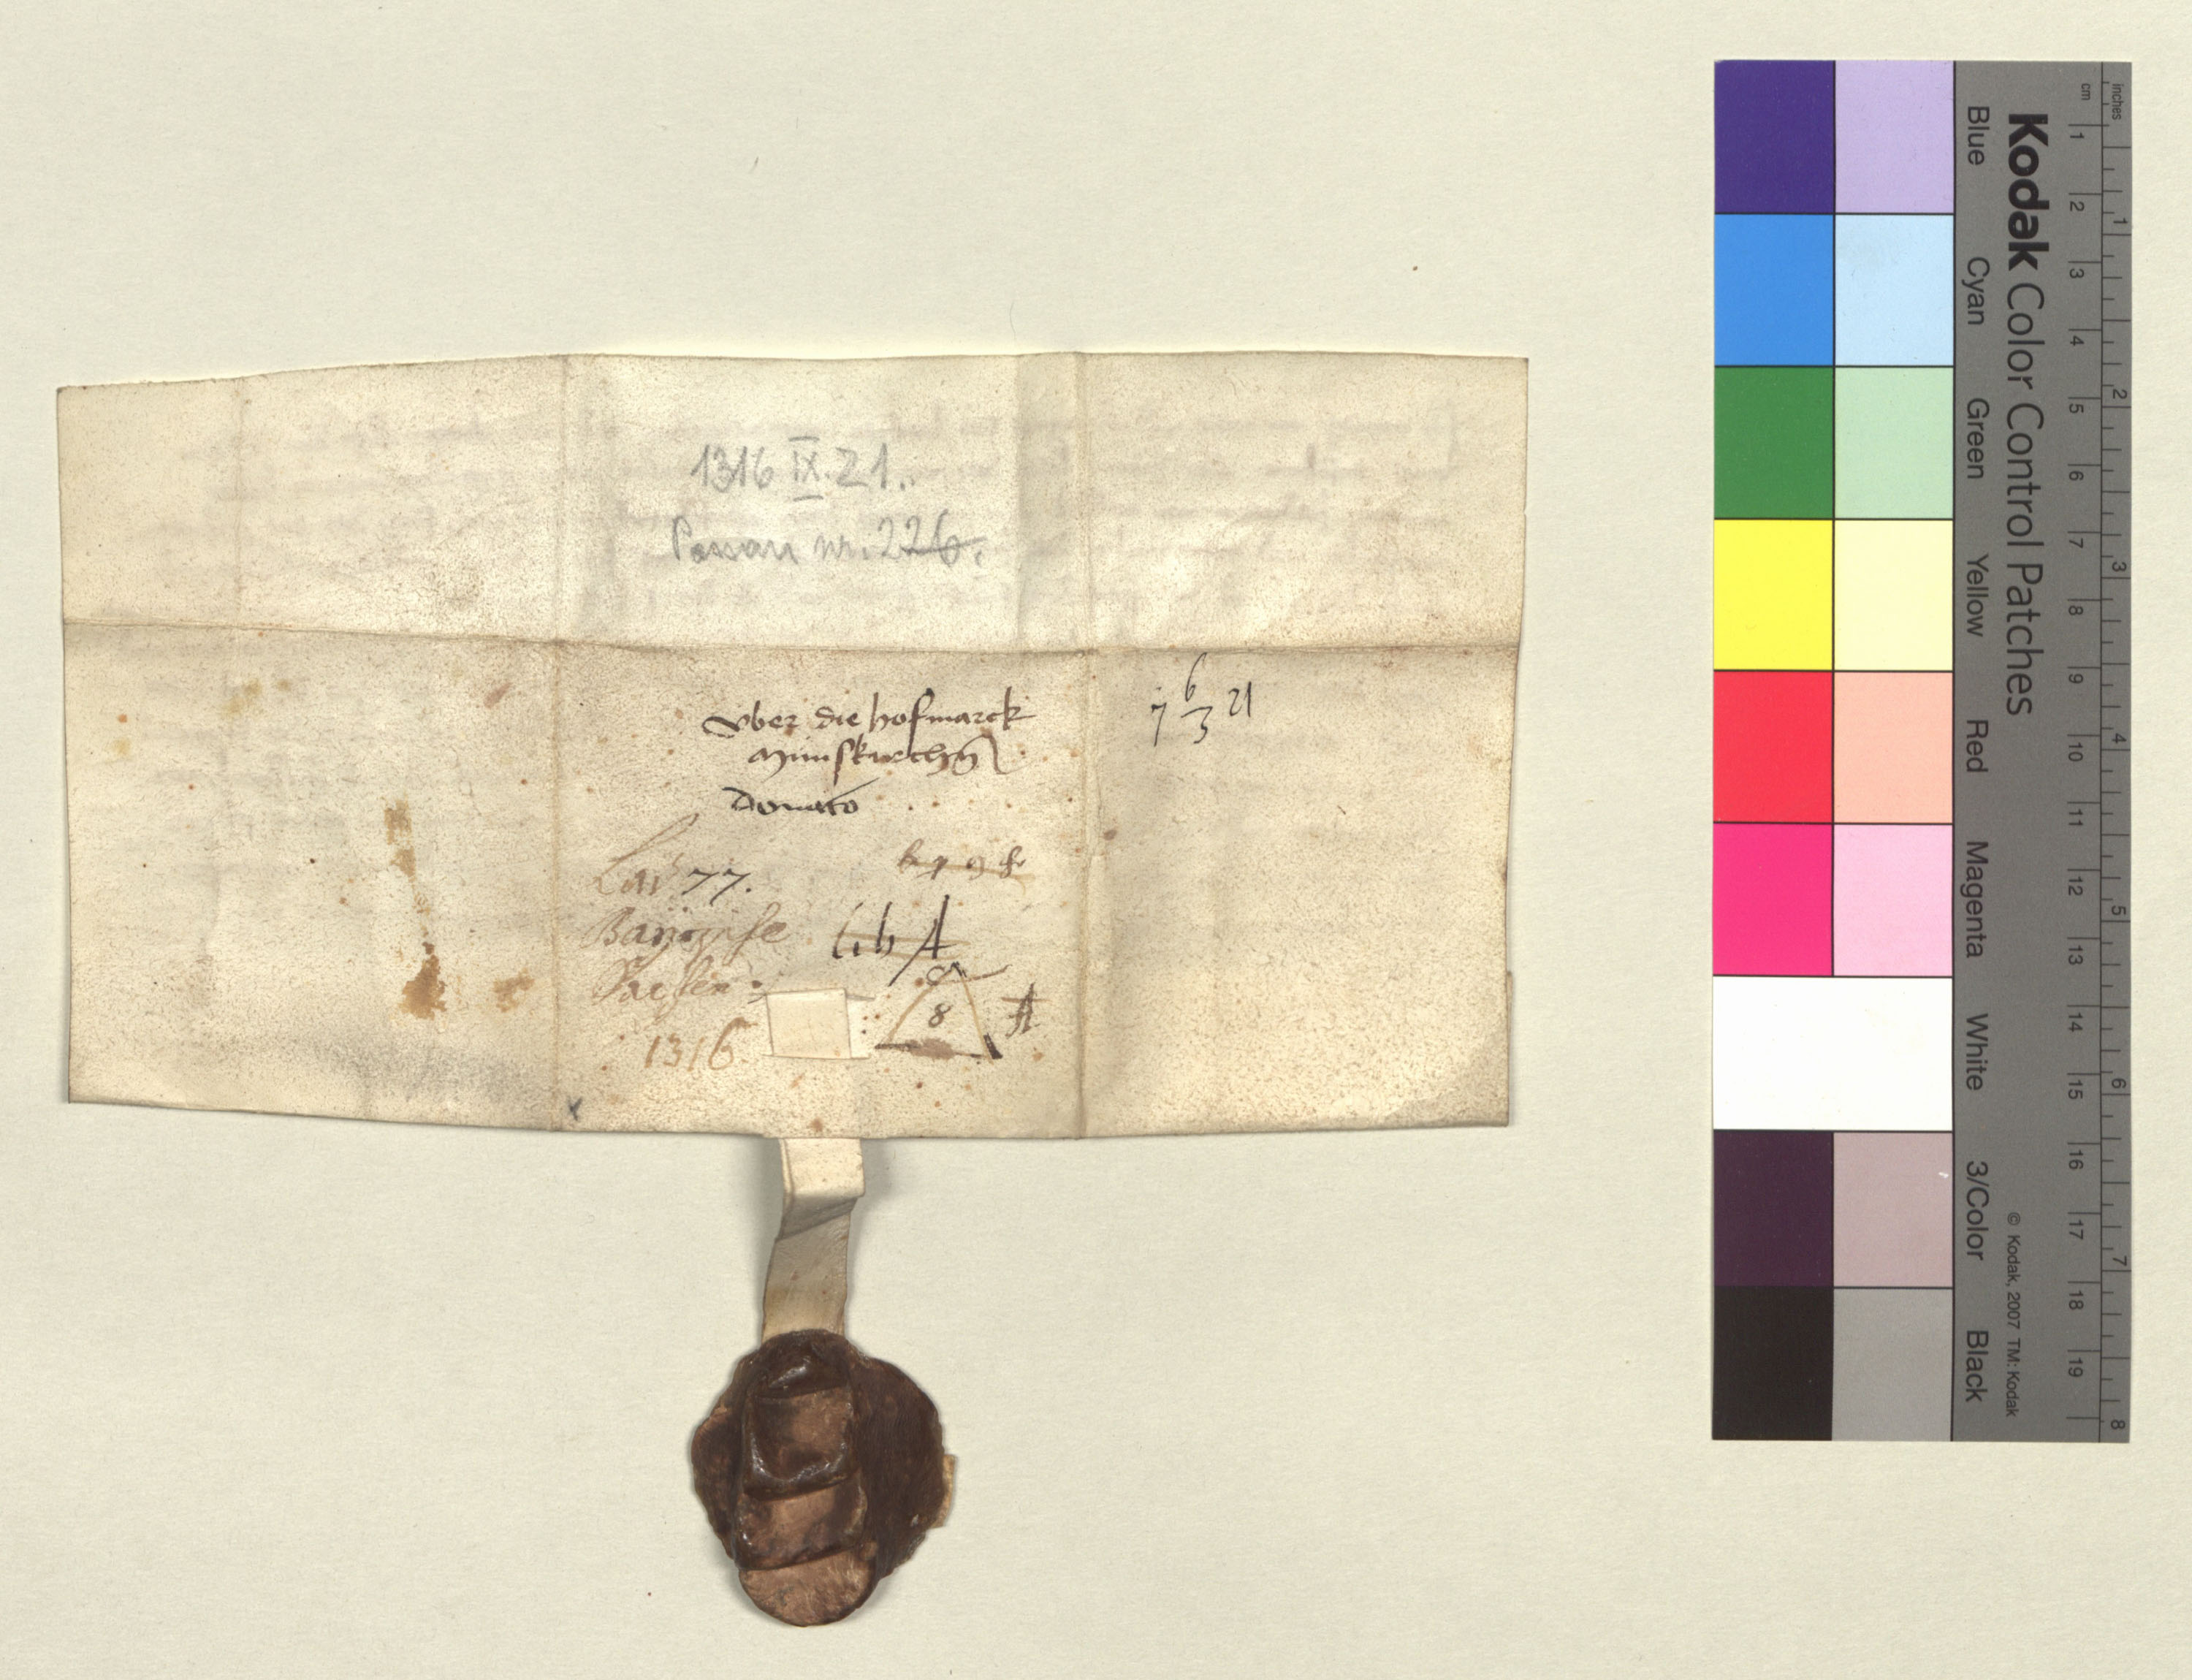 1316 IX. 21.
Passau nr. 226.
Vber die hofmarck
Münskirchn̄
Donatio
7 6/3 21
Lad 77.
lib A
8 A
1316
Kodak Color Control Patches
Blue Cyan Green Yellow Red Magenta White 3/Color Black
© Kodak, 2007 TM: Kodak
cm 1 2 3 4 5 6 7 8 9 10 11 12 13 14 15 16 17 18 19
inches 1 2 3 4 5 6 7 8